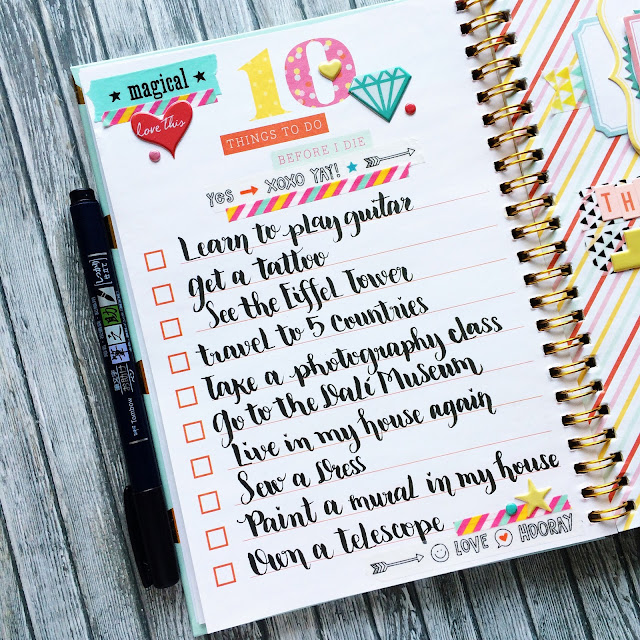 ★ magical ★
love this
10
THINGS TO DO
BEFORE I DIE
yes → XOXO YAY! ★
Learn to play guitar
get a tattoo
See the Eiffel Tower
travel to 5 countries
Take a photography class
Go to the Dalí Museum
Live in my house again
Sew a Dress
Paint a mural in my house
Own a telescope
LOVE HOORAY
TH
Tombow